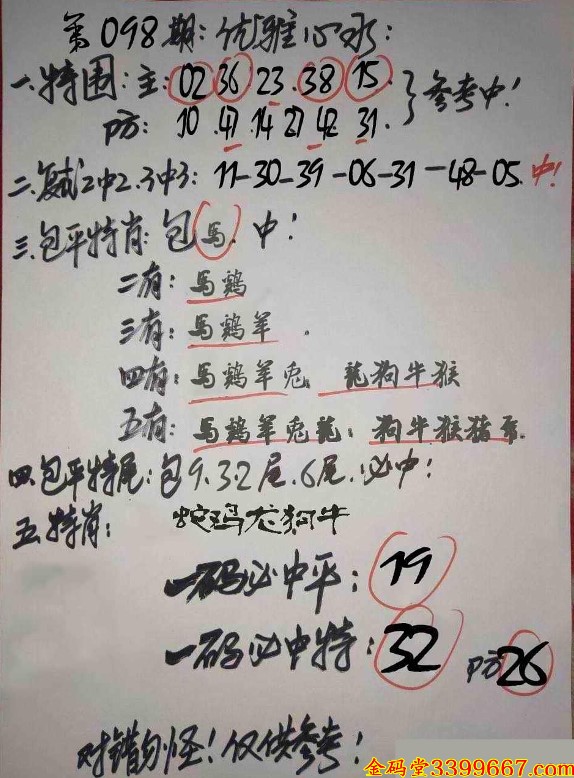 第098期:优雅心水:
一.特围:主:02 36 23.38 15.}参考中!
防:10.47.14 27 42 31.
二.复式2中2.3中3:11-30-39-06-31-48-05.中!
三.包平特肖:包马.中!
二有:马鷄
三有:马鷄羊.
四有:马鷄羊兔;龍狗牛猴
五有:马鷄羊兔龍;狗牛猴猪
四.包平特尾:包9.3.2尾.6尾.必中!
五.特肖:蛇鸡龙狗牛
一码必中平:19
一码必中特:32 防26
对错勿怪!仅供参考!
金码堂3399667.com